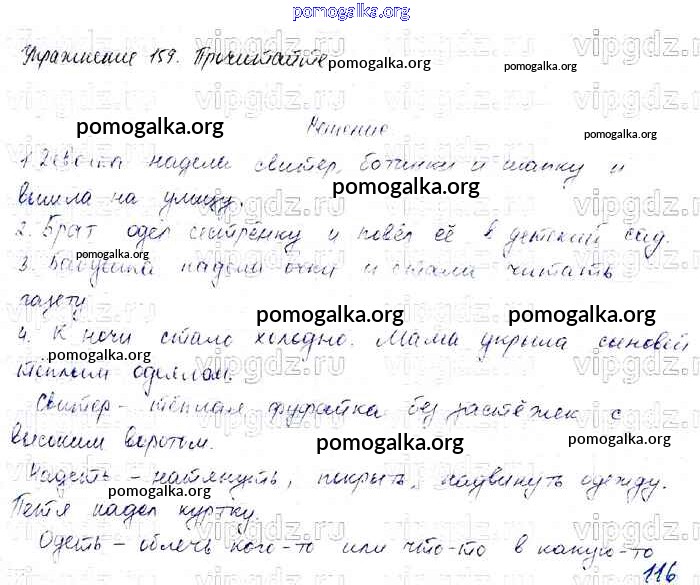 pomogalka.org
Упражнение 159. Прочитайте
pomogalka.org
pomogalka.org
Решение
pomogalka.org
pomogalka.org
1. надела свитер, ботинки и шапку и
вышла на улицу.
pomogalka.org
2. Брат одел сестрёнку и повёл её в детский сад.
pomogalka.org
3. Бабушка надела очки и стала читать
газету
pomogalka.org
pomogalka.org
4. К ночи стало холодно. Мама укрыла сыновей
pomogalka.org
тёплым одеялом.
Свитер - тёплая фуфайка без застёжек с
высоким воротом.
pomogalka.org
pomogalka.org
Надеть - натянуть, покрыть, надвинуть одежду.
pomogalka.org
pomogalka.org
Петя надел куртку.
Одеть - облечь кого-то или что-то в какую-то
116
vipgdz.ru